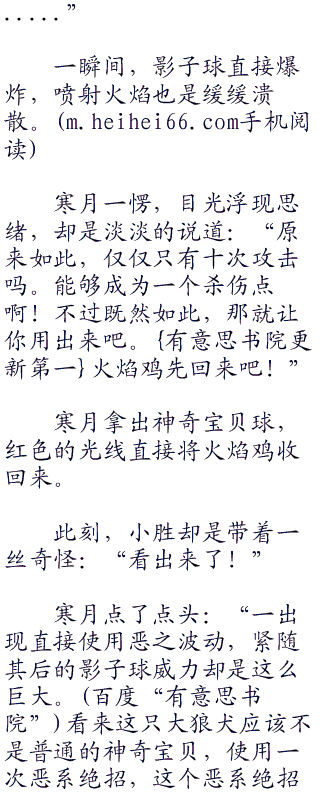 .....”
一瞬间，影子球直接爆
炸，喷射火焰也是缓缓溃
散。(m.heihei66.com手机阅
读)
寒月一愣，目光浮现思
绪，却是淡淡的说道：“原
来如此，仅仅只有十次攻击
吗。能够成为一个杀伤点
啊！不过既然如此，那就让
你用出来吧。{有意思书院更
新第一}火焰鸡先回来吧！”
寒月拿出神奇宝贝球，
红色的光线直接将火焰鸡收
回来。
此刻，小胜却是带着一
丝奇怪：“看出来了！”
寒月点了点头：“一出
现直接使用恶之波动，紧随
其后的影子球威力却是这么
巨大。(百度“有意思书
院”)看来这只大狼犬应该不
是普通的神奇宝贝，使用一
次恶系绝招，这个恶系绝招